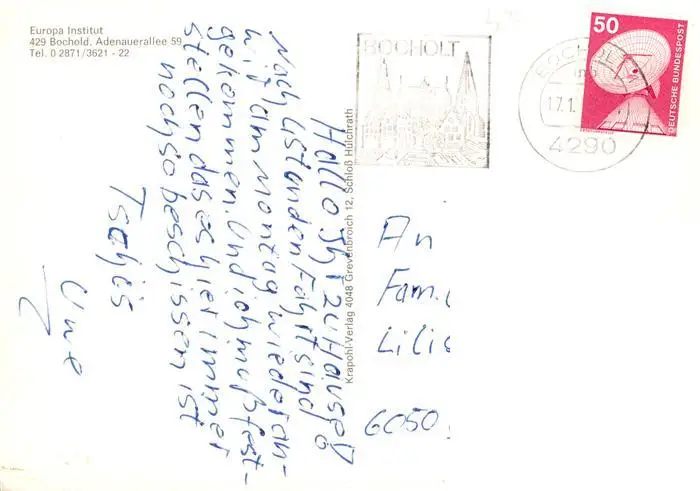 Europa Institut
429 Bochold, Adenauerallee 59
Tel. 0 2871/3621 - 22
BOCHOLT
BOCHOLT
17.1.
4290
50
DEUTSCHE BUNDESPOST
Hallo Ihr zu Hause!
Nach 6 Stunden Fahrt sind
wir am Montag wieder an-
gekommen. Und ich muß fest-
stellen das es hier immer
noch so beschissen ist
Tschüs
Uwe
Krapohl-Verlag 4048 Grevenbroich 12, Schloß Hülchrath
An
Fam.
Lilie
6050